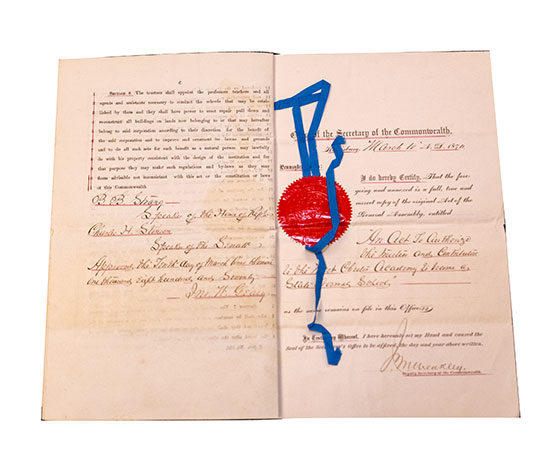 Section 8. The trustees shall appoint the professors teachers and all
agents and assistants necessary to conduct the schools that may be estab-
lished by them and they shall have power to erect repair pull down and
reconstruct all buildings on lands now belonging to or that may hereafter
belong to said corporation according to their discretion for the benefit of
the said corporation and to improve and ornament the lawns and grounds
and to do all such acts for such benefit as a natural person may lawfully
do with his property consistent with the design of the institution and for
that purpose they may make such regulations and bylaws as they may
deem advisable not inconsistent with this act or the constitution or laws
of this Commonwealth
B. B. Strang
Speaker of the House of Rep
Charles H. Stinson
Speaker of the Senate
Approved the Tenth day of March Anno Domini
one thousand Eight hundred and Seventy
Jno W. Geary
Office of the Secretary of the Commonwealth.
March 10 A.D. 1870
Pennsylvania
I do hereby Certify, That the fore-
going and annexed is a full, true and
correct copy of the original Act of the
General Assembly, entitled
An Act To Authorize
the trustees and Contributors
to the West Chester Academy to become a
State Normal School
as the same remains on file in this Office
In Testimony Whereof, I have hereunto set my Hand and caused the
Seal of the Secretary's Office to be affixed, the day and year above written.
Deputy Secretary of the Commonwealth.